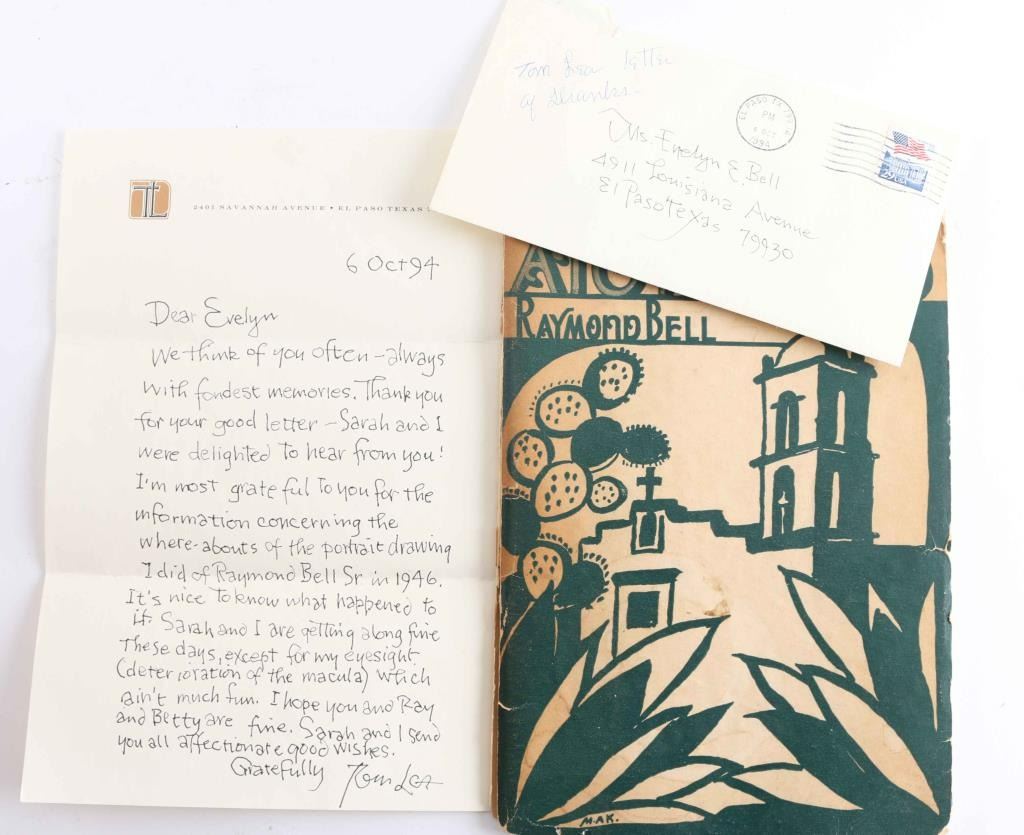 TL
2401 SAVANNAH AVENUE • EL PASO TEXAS
6 Oct 94
Dear Evelyn
We think of you often – always
with fondest memories. Thank you
for your good letter – Sarah and I
were delighted to hear from you!
I'm most grateful to you for the
information concerning the
where-abouts of the portrait drawing
I did of Raymond Bell Sr in 1946.
It's nice to know what happened to
it. Sarah and I are getting along fine
these days, except for my eyesight
(deterioration of the macula) which
ain't much fun. I hope you and Ray
and Betty are fine. Sarah and I send
you all affectionate good wishes.
Gratefully Tom Lea
Tom Lea letter
of thanks-
EL PASO TX
PM
6 OCT
1994
29 USA
Ms. Evelyn E. Bell
4911 Louisiana Avenue
El Paso Texas 79930
RAYMOND BELL
M.AK.